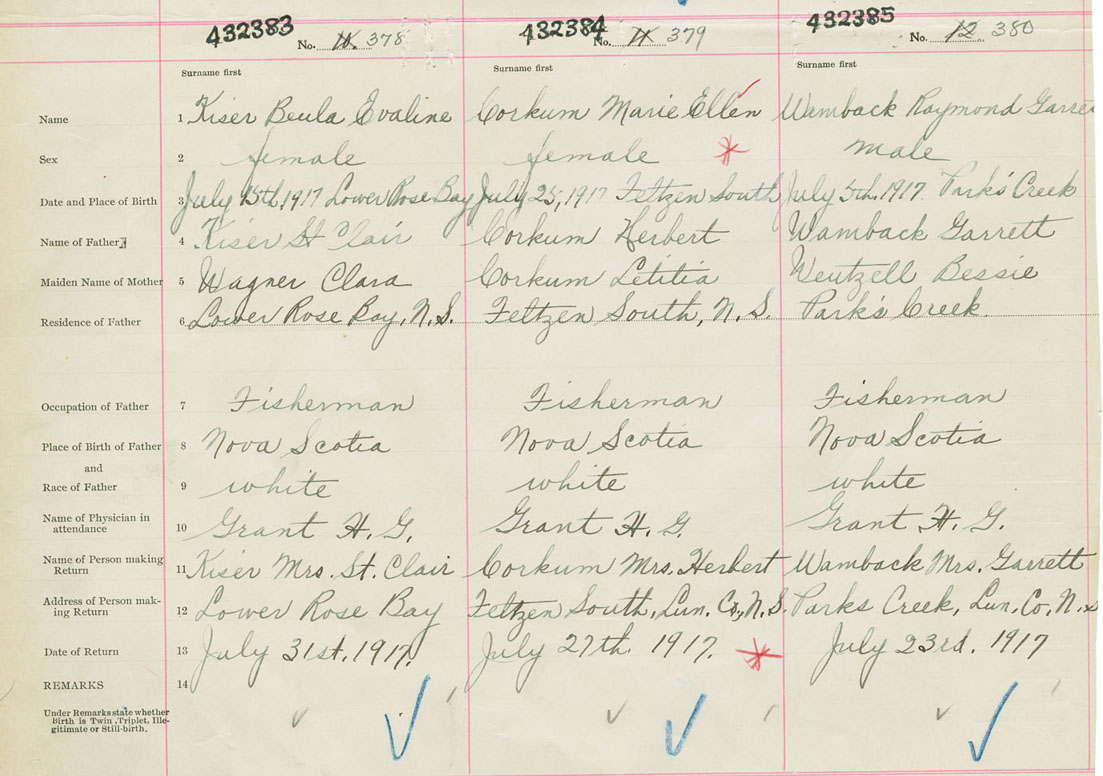 432383 432384 432385
No. 11. 378 No. 11 379 No. 12 380
Surname first Surname first Surname first
Name 1 Kiser Beula Evaline Corkum Marie Ellen Wamback Raymond Garre
Sex 2 female female male
Date and Place of Birth 3 July 15th, 1917 Lower Rose Bay July 25, 1917 Feltzen South July 5th. 1917. Park's Creek
Name of Father 4 Kiser St Clair Corkum Herbert Wamback Garrett
Maiden Name of Mother 5 Wagner Clara Corkum Letitia Wentzell Bessie
Residence of Father 6 Lower Rose Bay, N.S. Feltzen South, N.S. Park's Creek.
Occupation of Father 7 Fisherman Fisherman Fisherman
Place of Birth of Father 8 Nova Scotia Nova Scotia Nova Scotia
and
Race of Father 9 white white white
Name of Physician in
attendance 10 Grant H. G. Grant H. G. Grant H. G.
Name of Person making
Return 11 Kiser Mrs. St. Clair Corkum Mrs. Herbert Wamback Mrs. Garrett
Address of Person mak-
ing Return 12 Lower Rose Bay Feltzen South, Lun. Co., N.S. Parks Creek, Lun. Co, N.S
Date of Return 13 July 31st. 1917. July 27th. 1917. July 23rd. 1917
REMARKS 14
Under Remarks state whether
Birth is Twin, Triplet, Ille-
gitimate or Still-birth.